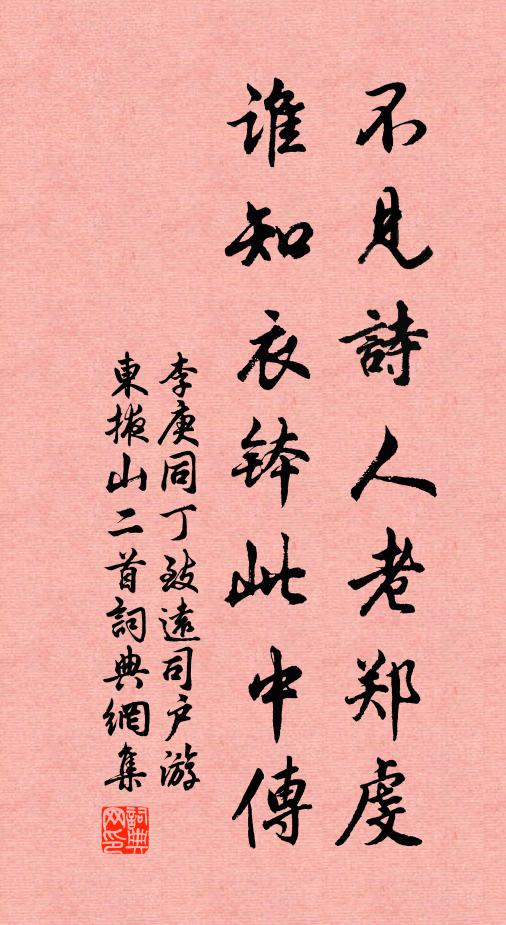 不見詩人老郑虔
誰知衣鉢此中傳
李庚同丁致遠司戶游
東掖山二首詞典網集
詞典
网印